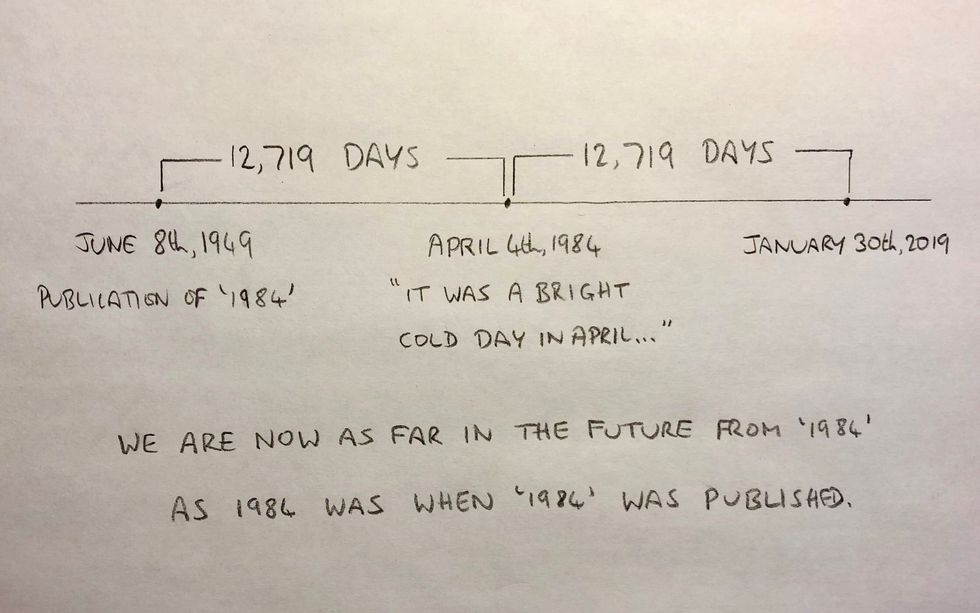 12,719 DAYS 12,719 DAYS
JUNE 8th, 1949 APRIL 4th, 1984 JANUARY 30th, 2019
PUBLICATION OF '1984' "IT WAS A BRIGHT
COLD DAY IN APRIL..."
WE ARE NOW AS FAR IN THE FUTURE FROM '1984'
AS 1984 WAS WHEN '1984' WAS PUBLISHED.